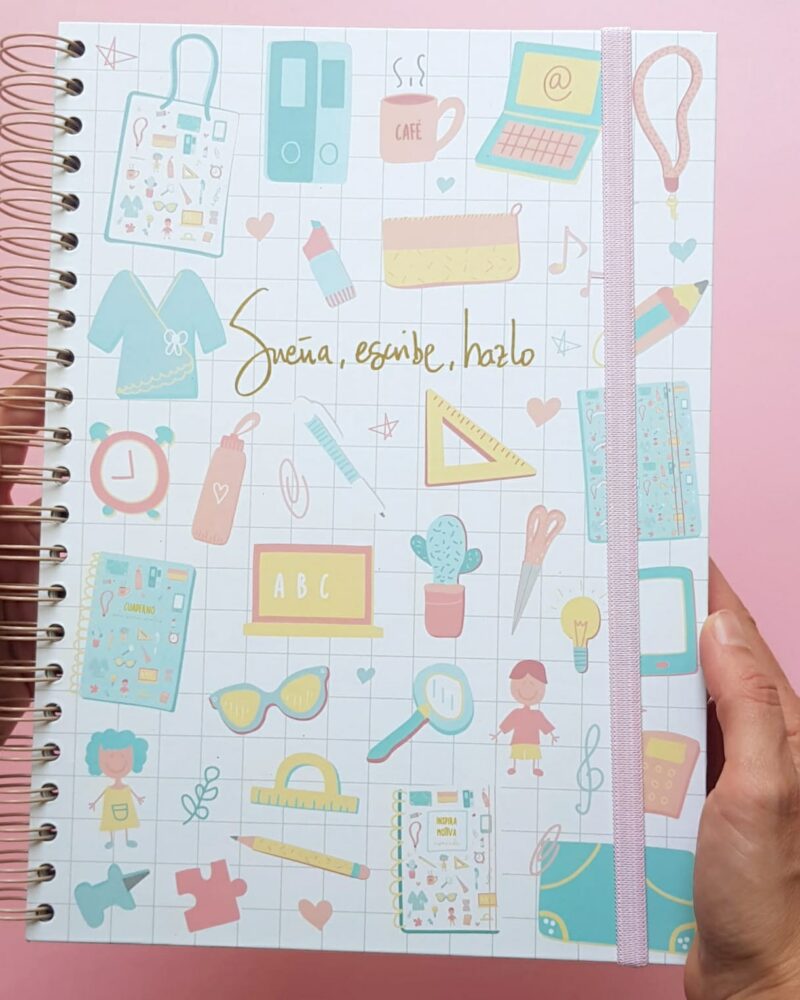 @
CAFÉ
Sueña, escribe, hazlo
A B C
CUADERNO
INSPIRA
MOTIVA